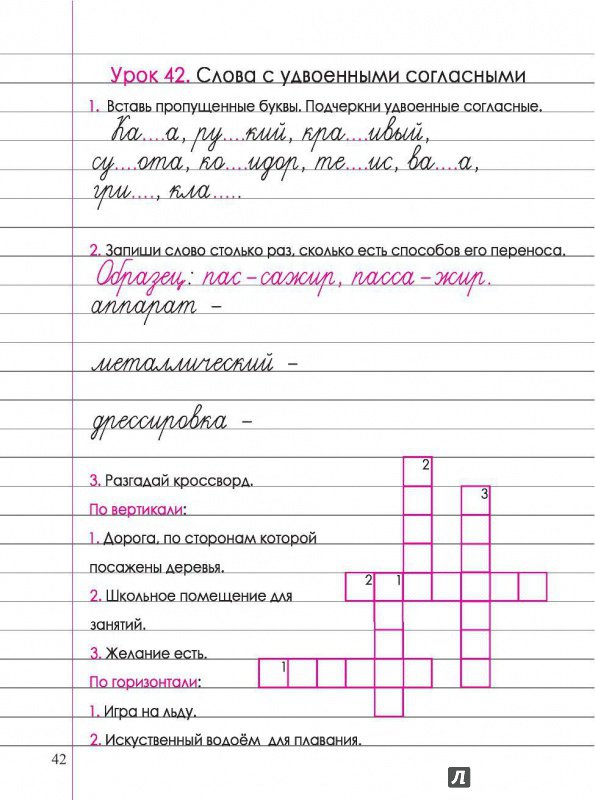 Урок 42. Слова с удвоенными согласными
1. Вставь пропущенные буквы. Подчеркни удвоенные согласные.
Ка....а, ру....кий, кра....ивый,
су....ота, ко....идор, те....ис, ва....а,
гри...., кла.....
2. Запиши слово столько раз, сколько есть способов его переноса.
Образец: пас – сажир, пасса – жир.
аппарат –
металлический –
дрессировка –
3. Разгадай кроссворд.
По вертикали:
1. Дорога, по сторонам которой
посажены деревья.
2. Школьное помещение для
занятий.
3. Желание есть.
По горизонтали:
1. Игра на льду.
2. Искуственный водоём для плавания.
2
3
2 1
1
42
Л